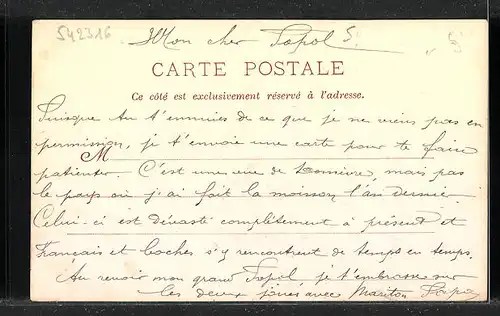 542316
Mon cher Popol
CARTE POSTALE
Ce côté est exclusivement réservé à l'adresse.
Puisque tu t'ennuies de ce que je ne viens pas en
permission, je t'envoie une carte pour te faire
M
patienter. C'est une vue de mais pas
le pays où j'ai fait la moisson l'an dernier.
Celui-ci est dévasté complètement à présent et
Français et Boches s'y rencontrent de temps en temps.
Au revoir mon grand Popol je t'embrasse sur
les deux joues avec Papa